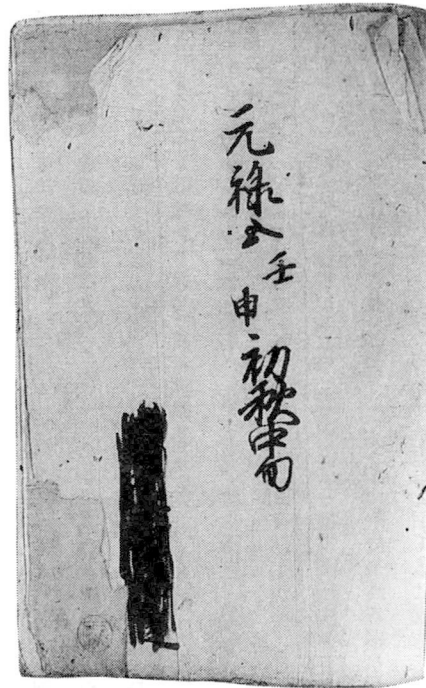 元禄五壬申初秋中旬